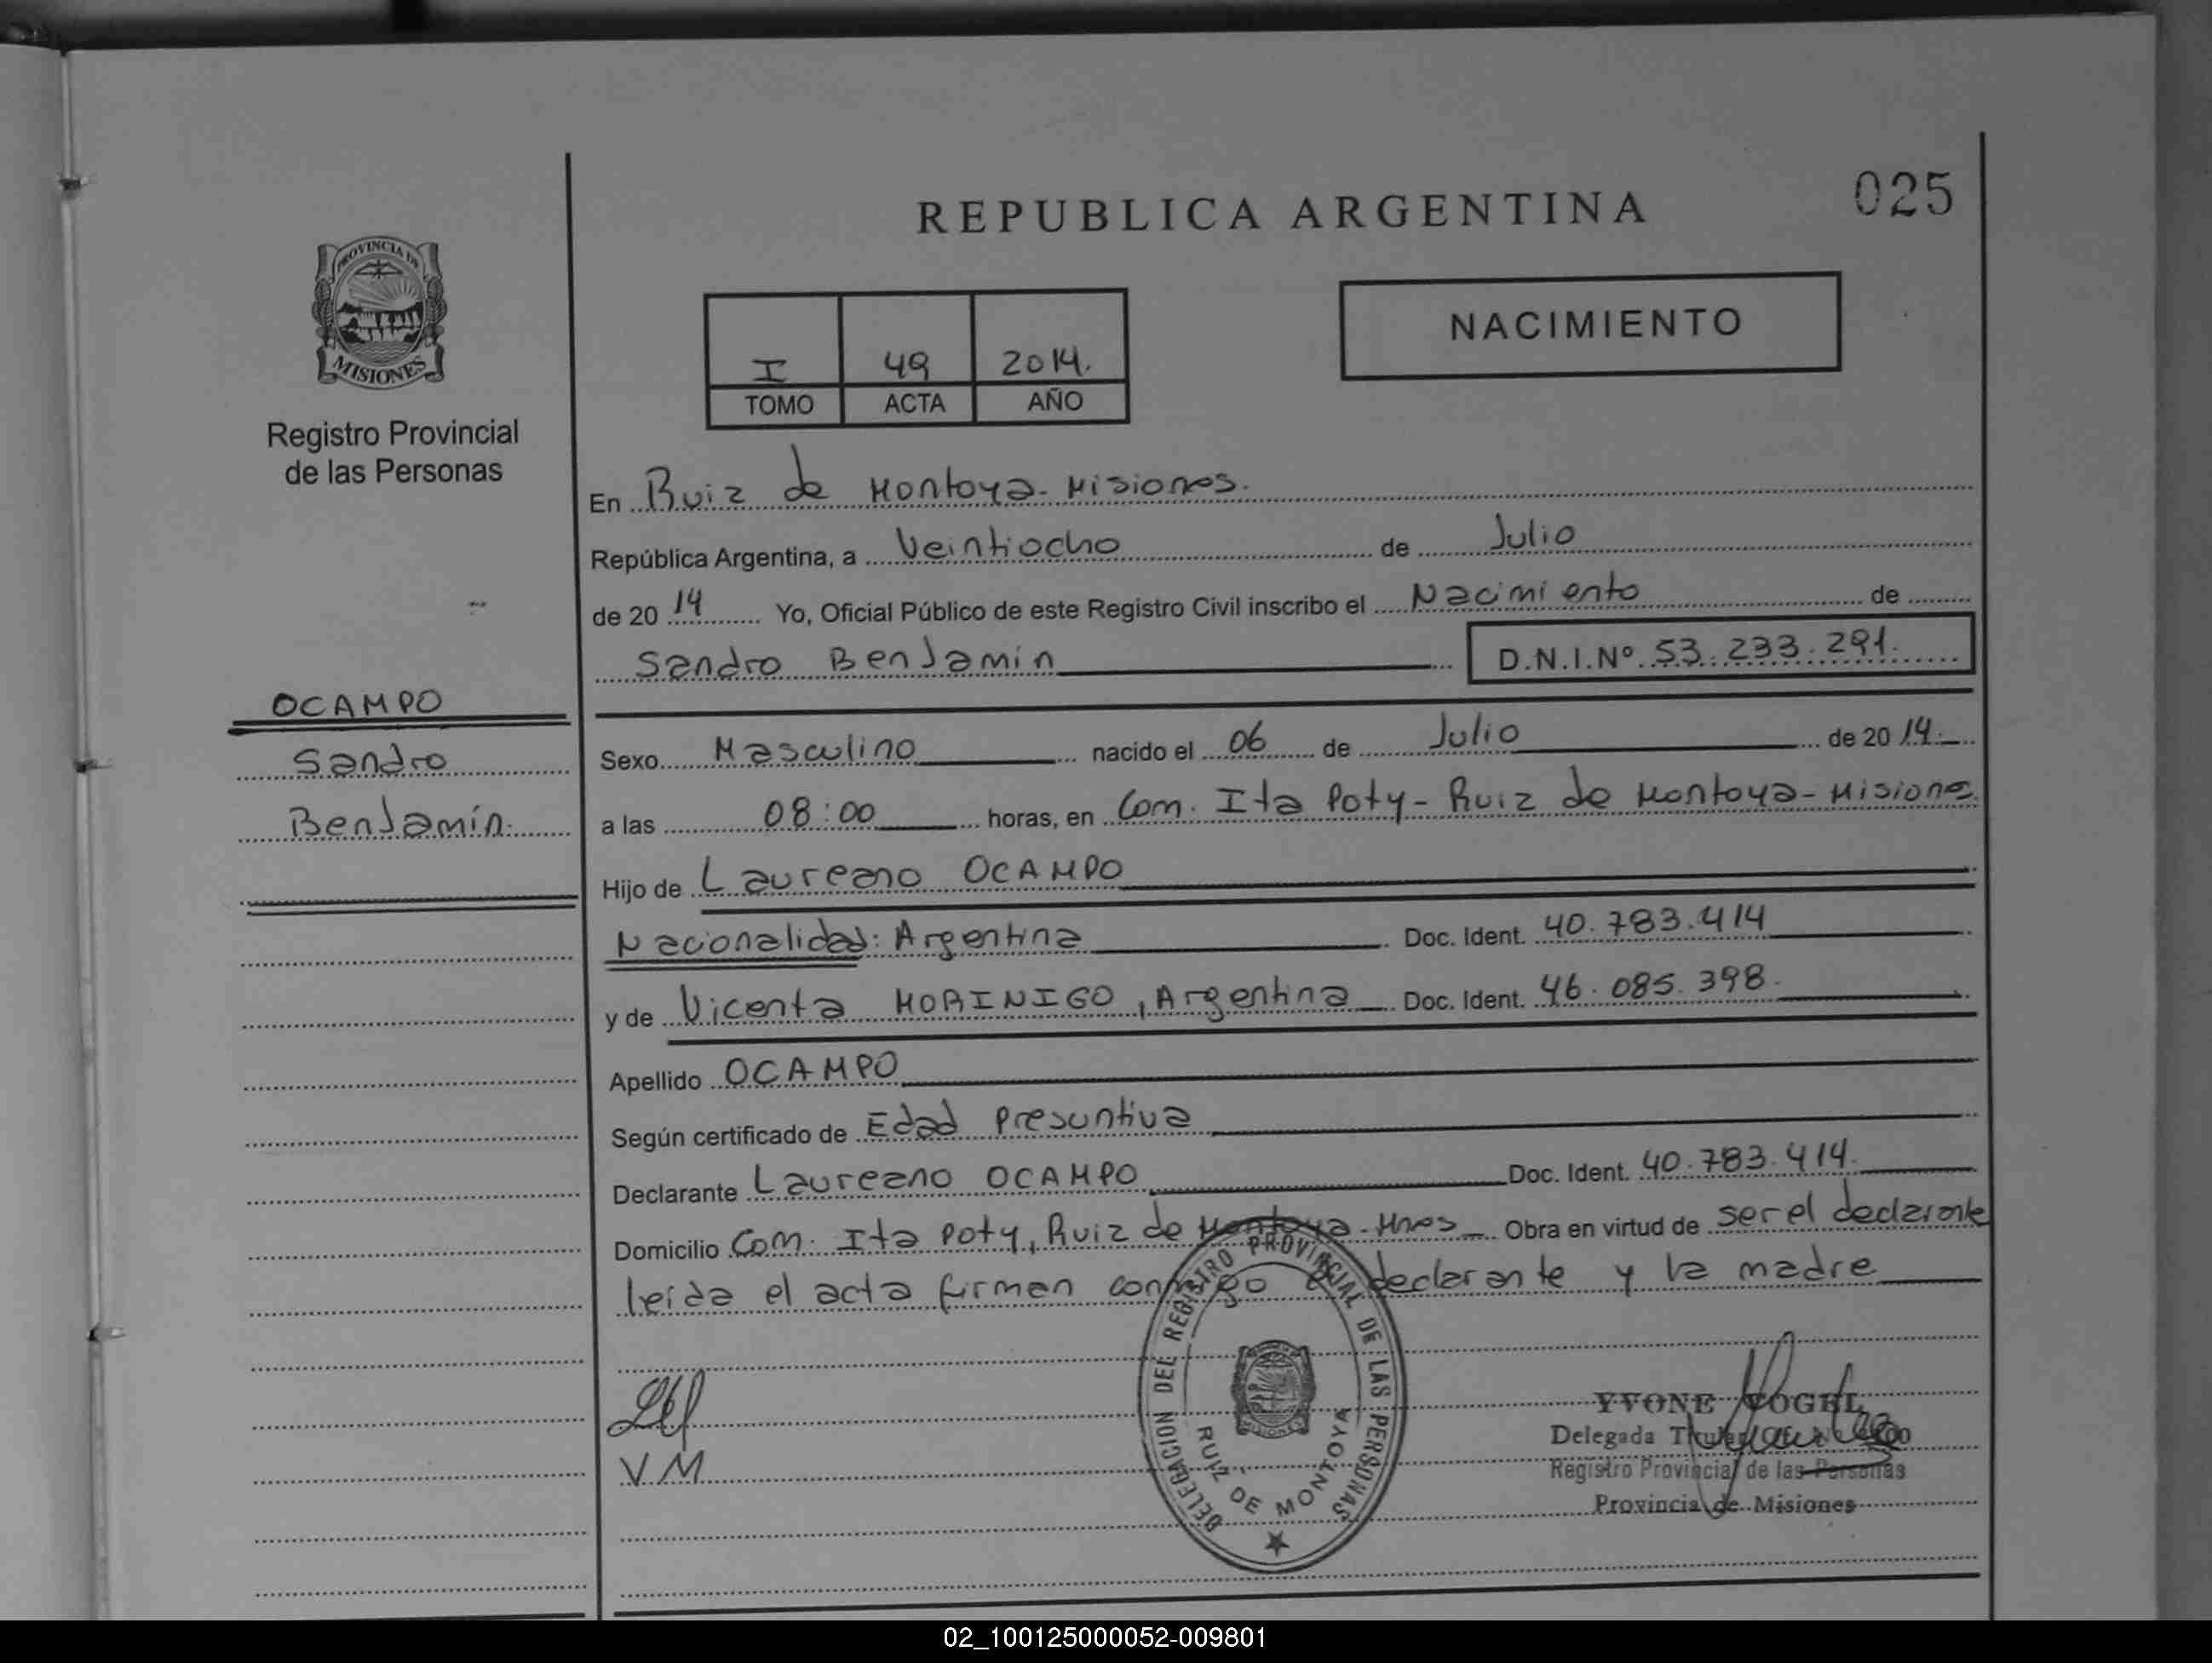 REPUBLICA ARGENTINA
025
PROVINCIA DE
MISIONES
Registro Provincial
de las Personas
I 49 2014.
TOMO ACTA AÑO
NACIMIENTO
En Ruiz de Montoya - Misiones.
República Argentina, a Veintiocho de Julio
de 20 14 Yo, Oficial Público de este Registro Civil inscribo el Nacimiento de
Sandro Benjamín D.N.I.Nº 53.233.291.
OCAMPO
Sandro
Benjamín.
Sexo Masculino nacido el 06 de Julio de 20 14.
a las 08:00 horas, en Com. Ita Poty - Ruiz de Montoya - Misiones.
Hijo de Laureano OCAMPO
Nacionalidad: Argentina Doc. Ident. 40.783.414
y de Vicenta MORINIGO, Argentina Doc. Ident. 46.085.398.
Apellido OCAMPO
Según certificado de Edad Presuntiva
Declarante Laureano OCAMPO Doc. Ident. 40.783.414.
Domicilio Com. Ita Poty, Ruiz de Montoya - Mnes Obra en virtud de ser el declarante
leída el acta firman conmigo el declarante y la madre
V M
DELEGACION DEL REGISTRO PROVINCIAL DE LAS PERSONAS
RUIZ DE MONTOYA
MISIONES
YVONE VOGEL
Delegada Titular
Registro Provincial de las Personas
Provincia de Misiones
02_100125000052-009801